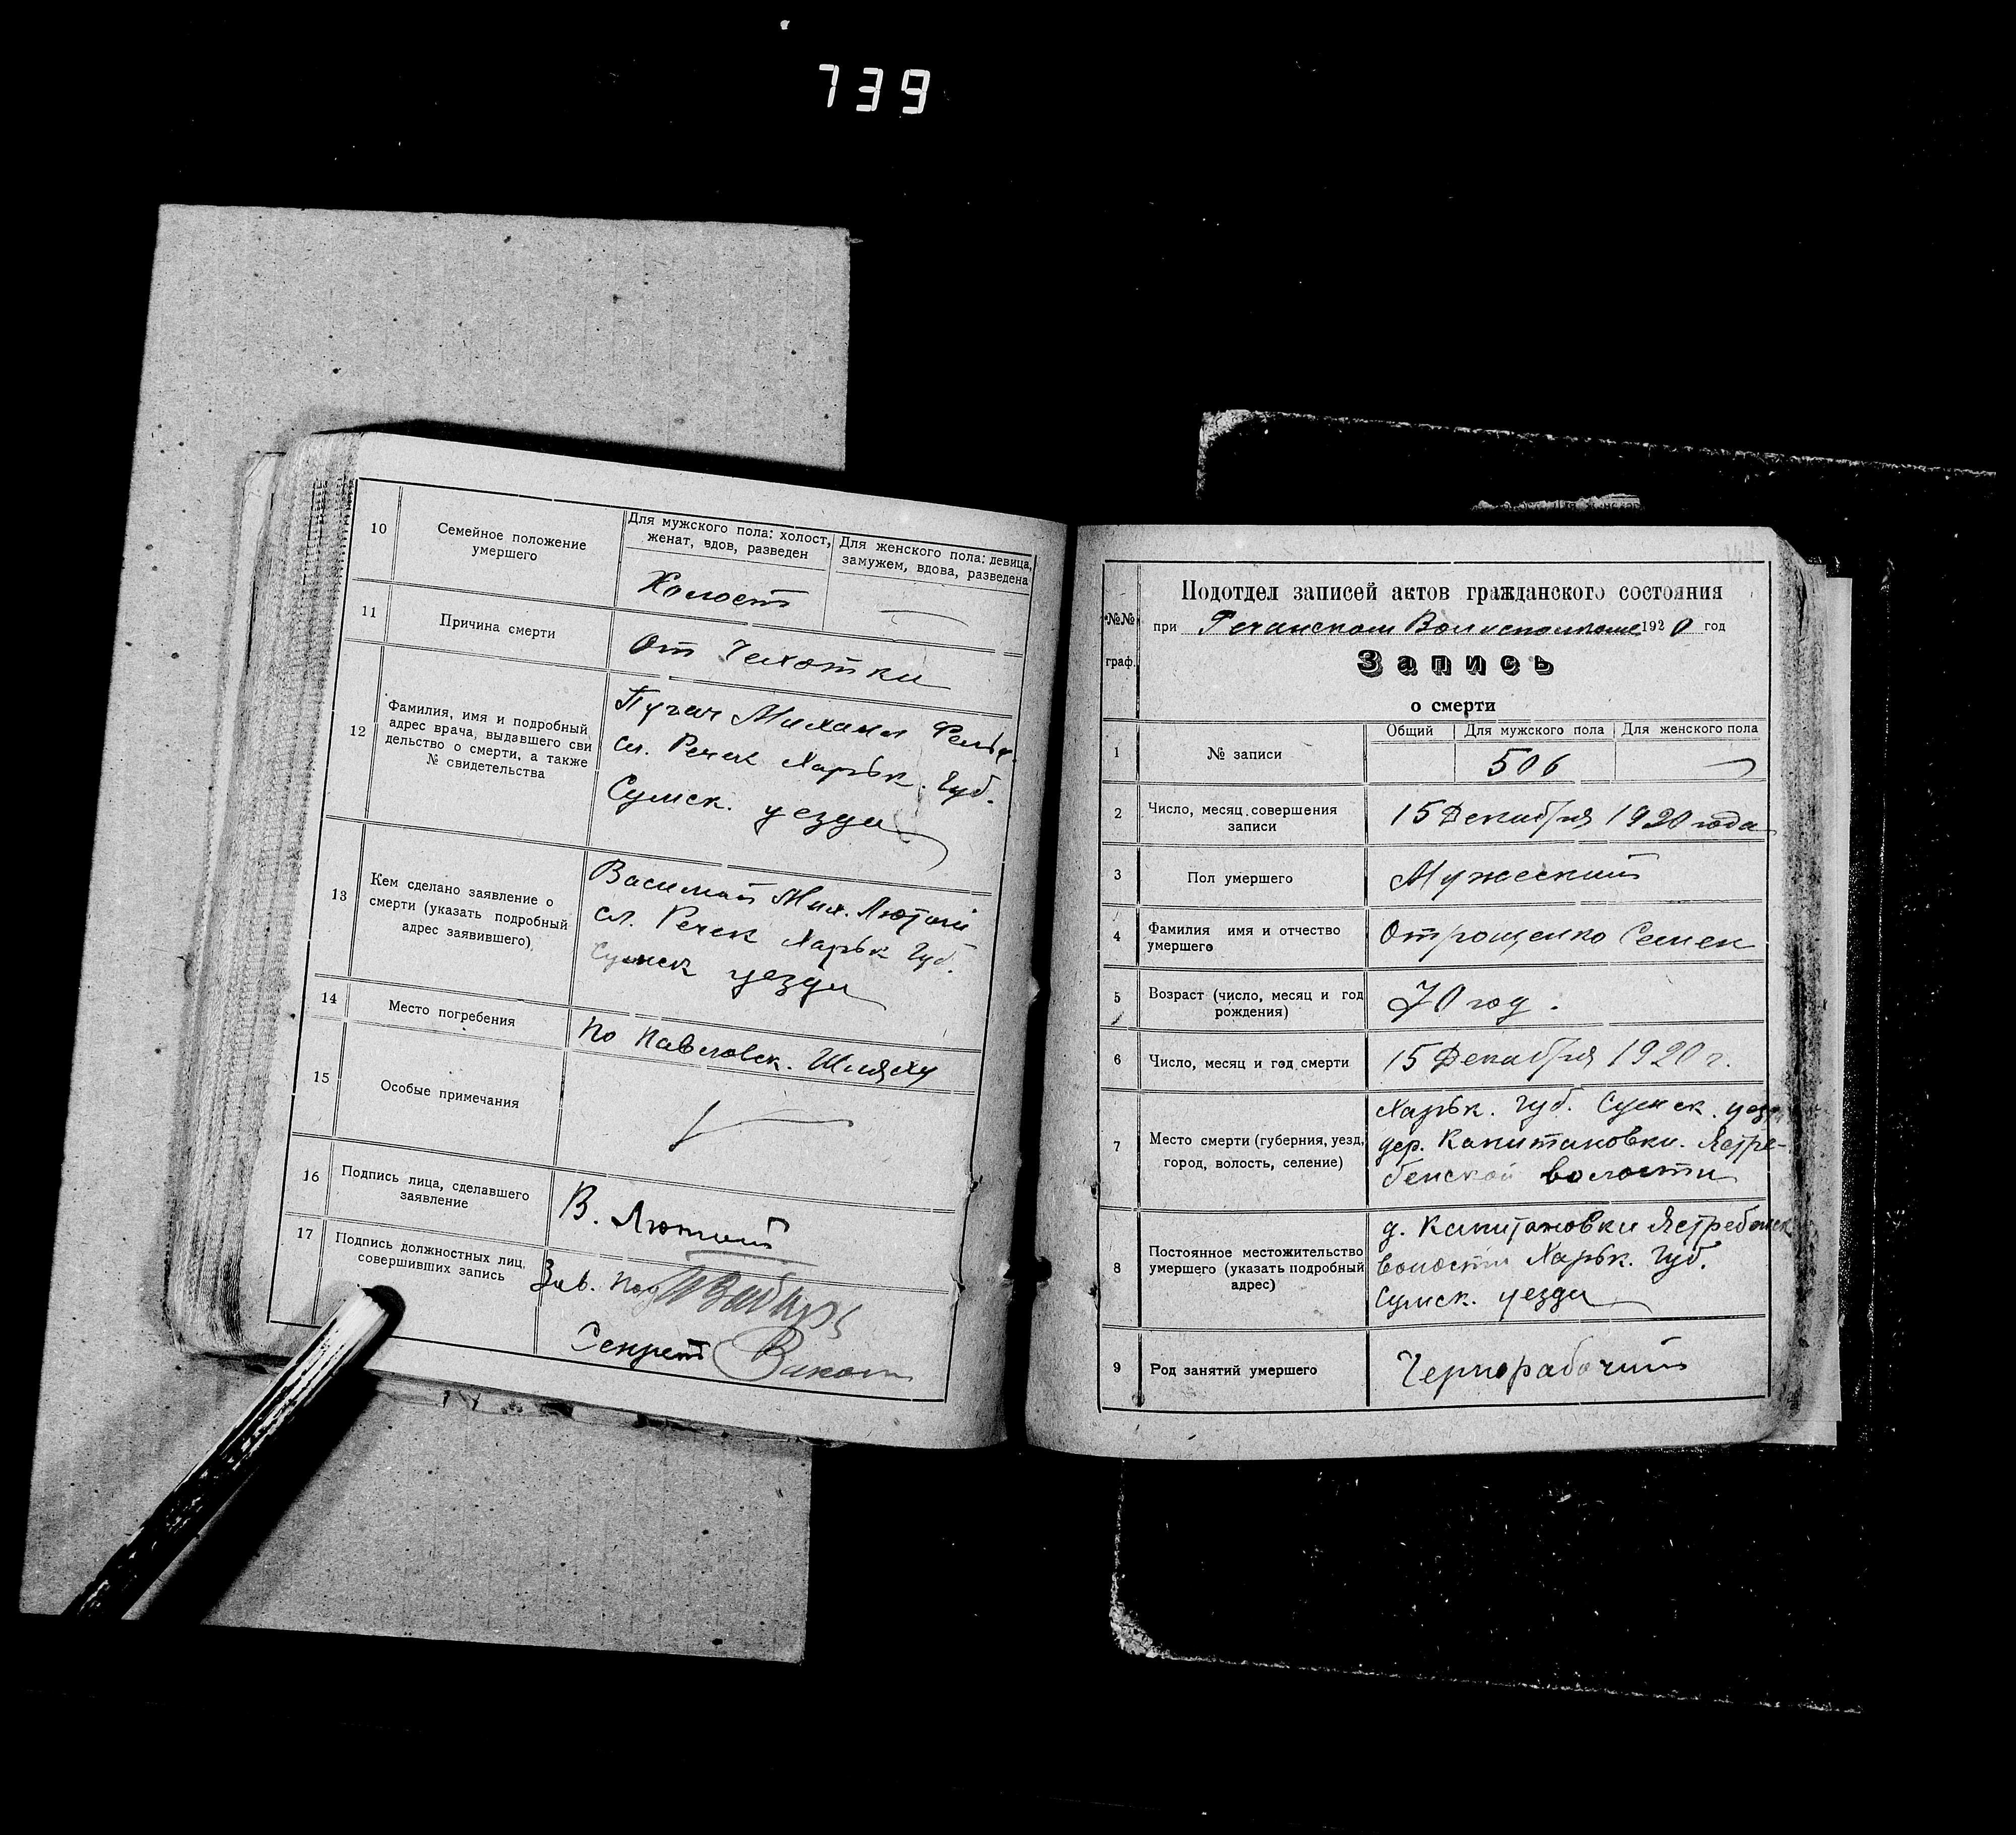 739
10
Семейное положение
умершего
Для мужского пола: холост,
женат, вдов, разведен
Для женского пола: девица,
замужем, вдова, разведена
Холост
11
Причина смерти
От Чехотки
12
Фамилия, имя и подробный
адрес врача, выдавшего сви
дельство о смерти, а также
№ свидетельства
Пугач Михаил Фельд.
сл. Речек Харьк. Губ.
Сумск. уезда
13
Кем сделано заявление о
смерти (указать подробный
адрес заявившего)
Василий Мих. Лютый
сл. Речек Харьк Губ.
Сумск уезда
14
Место погребения
по Павловск. Шляху
15
Особые примечания
16
Подпись лица, сделавшего
заявление
В. Лютый
17
Подпись должностных лиц,
совершивших запись
Зав. Под
Секрет
№№
граф.
Подотдел записей актов гражданского состояния
при Речанском Волисполкоме 1920 год
Запись
о смерти
1
№ записи
Общий
Для мужского пола
Для женского пола
506
2
Число, месяц совершения
записи
15 Декабря 1920 года
3
Пол умершего
Мужеский
4
Фамилия имя и отчество
умершего
Отрощенко Семен
5
Возраст (число, месяц и год
рождения)
70 год.
6
Число, месяц и год смерти
15 Декабря 1920 г.
7
Место смерти (губерния, уезд,
город, волость, селение)
Харьк. губ. Сумск. уезд
дер. Капитановки. Ястре-
бенской волости
8
Постоянное местожительство
умершего (указать подробный
адрес)
д. Капитановки Ястребенск
волости Харьк. Губ.
Сумск. уезда
9
Род занятий умершего
Чернорабочий